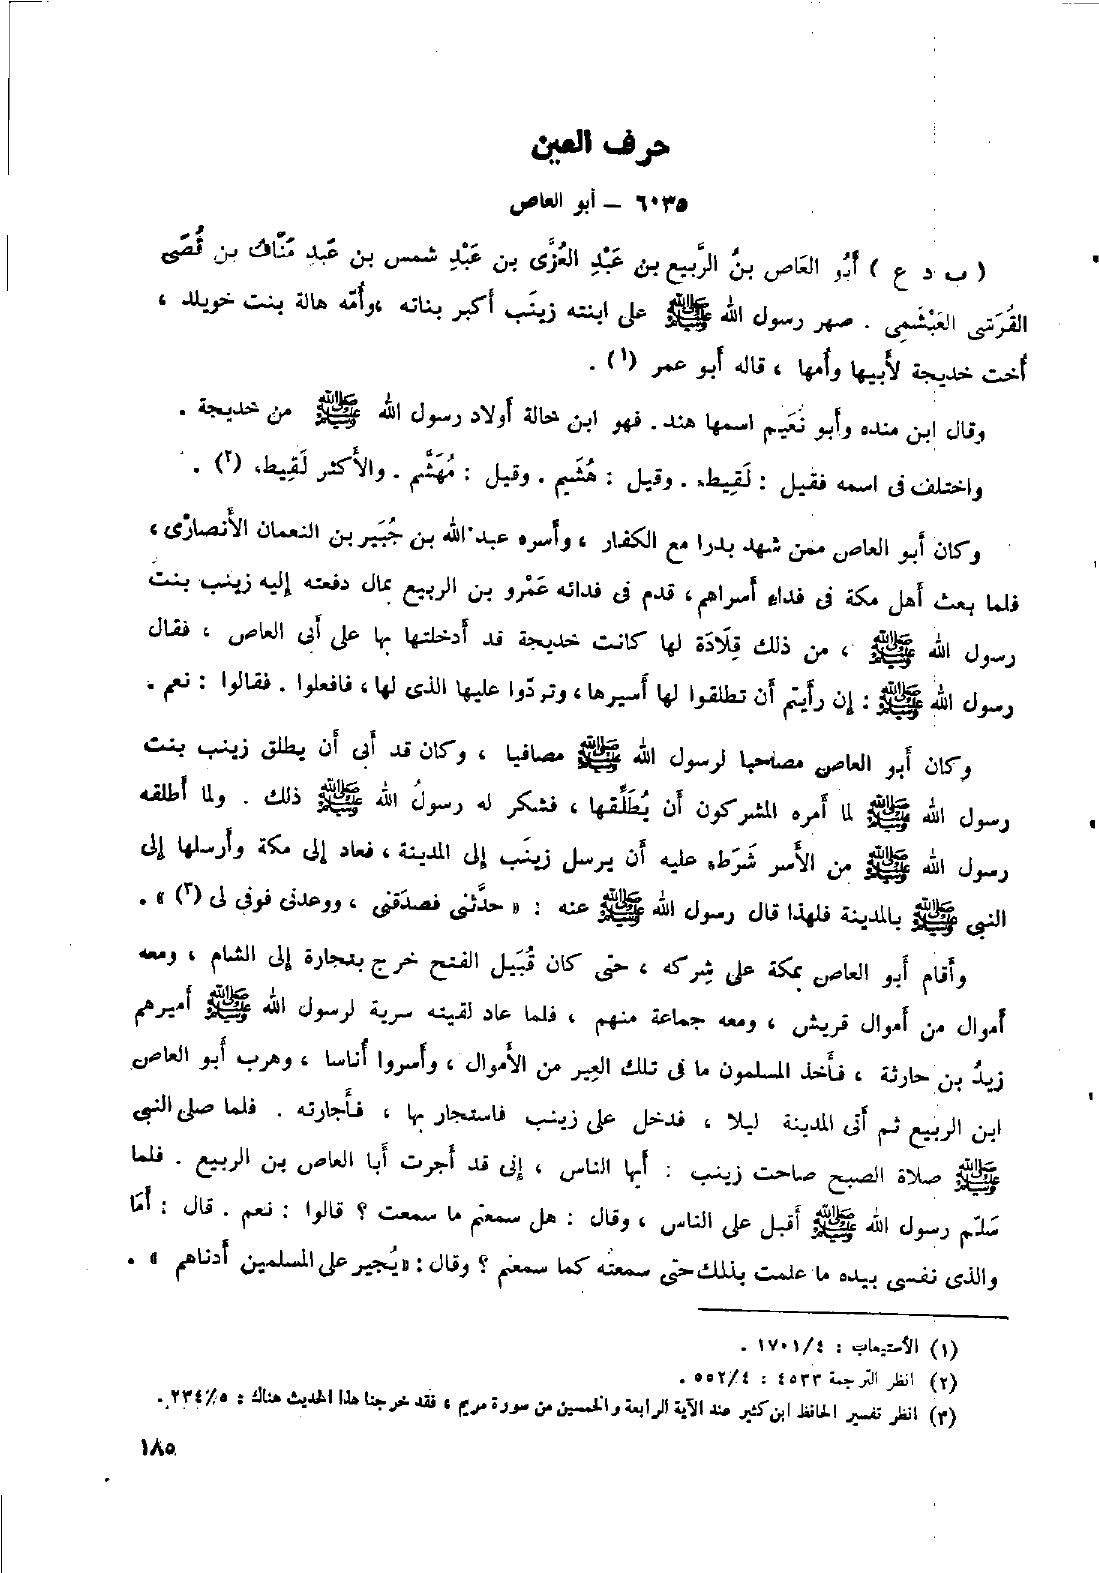 حرف العين
٦٠٣٥ – أبو العاص
( ب د ع ) أَبُو العَاص بنُ الرَّبيع بن عَبْدِ العُزَّى بن عَبْدِ شمس بن عَبدِ مَنَاف بن قُصَى
القُرَشى العَبْشَمِى . صهر رسول الله ﷺ على ابنته زينَب أكبر بناته ، وأُمّه هالة بنت خويلد ،
أُخت خديجة لأَبيها وأُمها ، قاله أَبو عمر (١) .
وقال ابن منده وأَبو نُعَيم اسمها هند . فهو ابن خالة أَولاد رسول الله ﷺ من خديجة .
واختلف فى اسمه فقيل : لَقِيط . وقيل : هُشَيم . وقيل : مُهَشَّم . والأَكثر لَقِيط (٢) .
وكان أَبو العاص ممن شهد بدرا مع الكفار ، وأَسره عبد الله بن جُبَير بن النعمان الأَنصارى ،
فلما بعث أَهل مكة فى فداءِ أَسراهم ، قدم فى فدائه عَمْرو بن الربيع بمال دفعته إِليه زينب بنت
رسول الله ﷺ ، من ذلك قِلَادَة لها كانت خديجة قد أَدخلتها بها على أَبى العاص ، فقال
رسول الله ﷺ : إِن رأَيتم أَن تطلقوا لها أَسيرها ، وتردّوا عليها الذى لها ، فافعلوا . فقالوا : نعم .
وكان أَبو العاص مصاحبا لرسول الله ﷺ مصافيا ، وكان قد أَبى أَن يطلق زينب بنت
رسول الله ﷺ لما أَمره المشركون أَن يُطَلِّقها ، فشكر له رسولُ الله ﷺ ذلك . ولما أَطلقه
رسول الله ﷺ من الأَسر شَرَط عليه أَن يرسل زينَب إِلى المدينة ، فعاد إِلى مكة وأَرسلها إِلى
النبى ﷺ بالمدينة فلهذا قال رسول الله ﷺ عنه : « حدَّثنى فصدَقنى ، ووعدنى فوفى لى (٣) » .
وأَقام أَبو العاص بمكة على شِركه ، حتى كان قُبَيل الفتح خرج بتجارة إِلى الشام ، ومعه
أَموال من أَموال قريش ، ومعه جماعة منهم ، فلما عاد لقيته سرية لرسول الله ﷺ أَميرهم
زيدُ بن حارثة ، فأَخذ المسلمون ما فى تلك العِير من الأَموال ، وأَسروا أُناسا ، وهرب أَبو العاص
ابن الربيع ثم أَتى المدينة ليلا ، فدخل على زينب فاستجار بها ، فأَجارته . فلما صلى النبى
ﷺ صلاة الصبح صاحت زينب : أَيها الناس ، إِنى قد أَجرت أَبا العاص بن الربيع . فلما
سَلّم رسول الله ﷺ أَقبل على الناس ، وقال : هل سمعتم ما سمعت ؟ قالوا : نعم . قال : أَمَا
والذى نفسى بيده ما علمت بذلك حتى سمعتُه كما سمعتم ؟ وقال : « يُجير على المسلمين أَدناهم » .
(١) الأستيعاب : ١٧٠١/٤ .
(٢) انظر الترجمة ٤٥٣٣ : ٥٥٢/٤ .
(٣) انظر تفسير الحافظ ابن كثير عند الآية الرابعة والخمسين من سورة مريم ، فقد خرجنا هذا الحديث هناك : ٢٣٤/٥ .
١٨٥